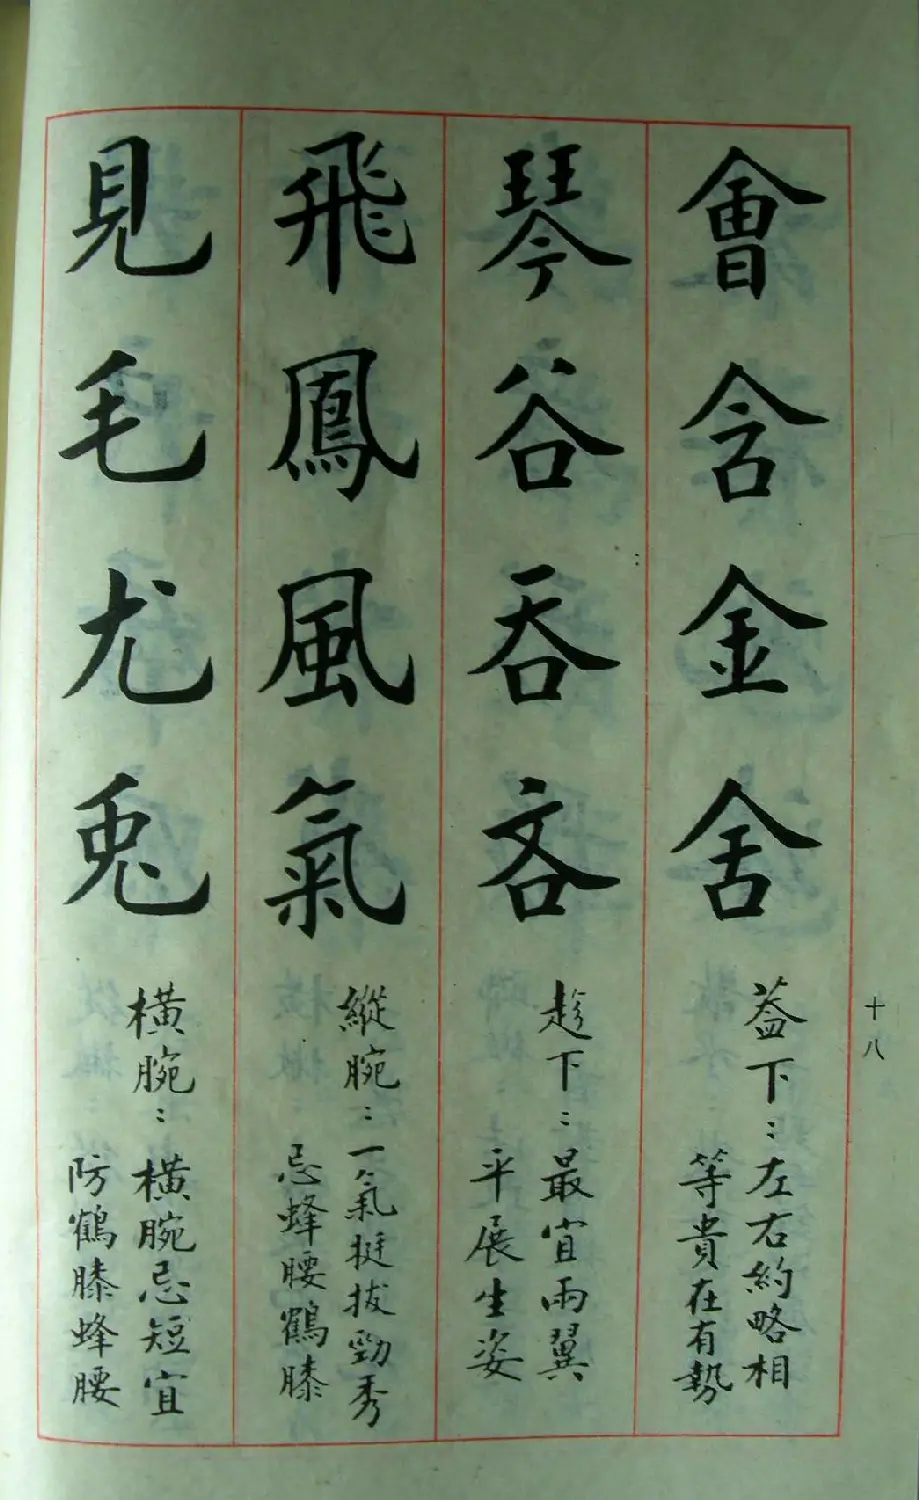 十八
會含金舍
蓋下：左右約略相
等貴在有勢
琴谷吞吝
趁下：最宜兩翼
平展生姿
飛鳳風氣
縱腕：一氣挺拔勁秀
忌蜂腰鶴膝
見毛尤兔
橫腕：橫腕忌短宜
防鶴膝蜂腰